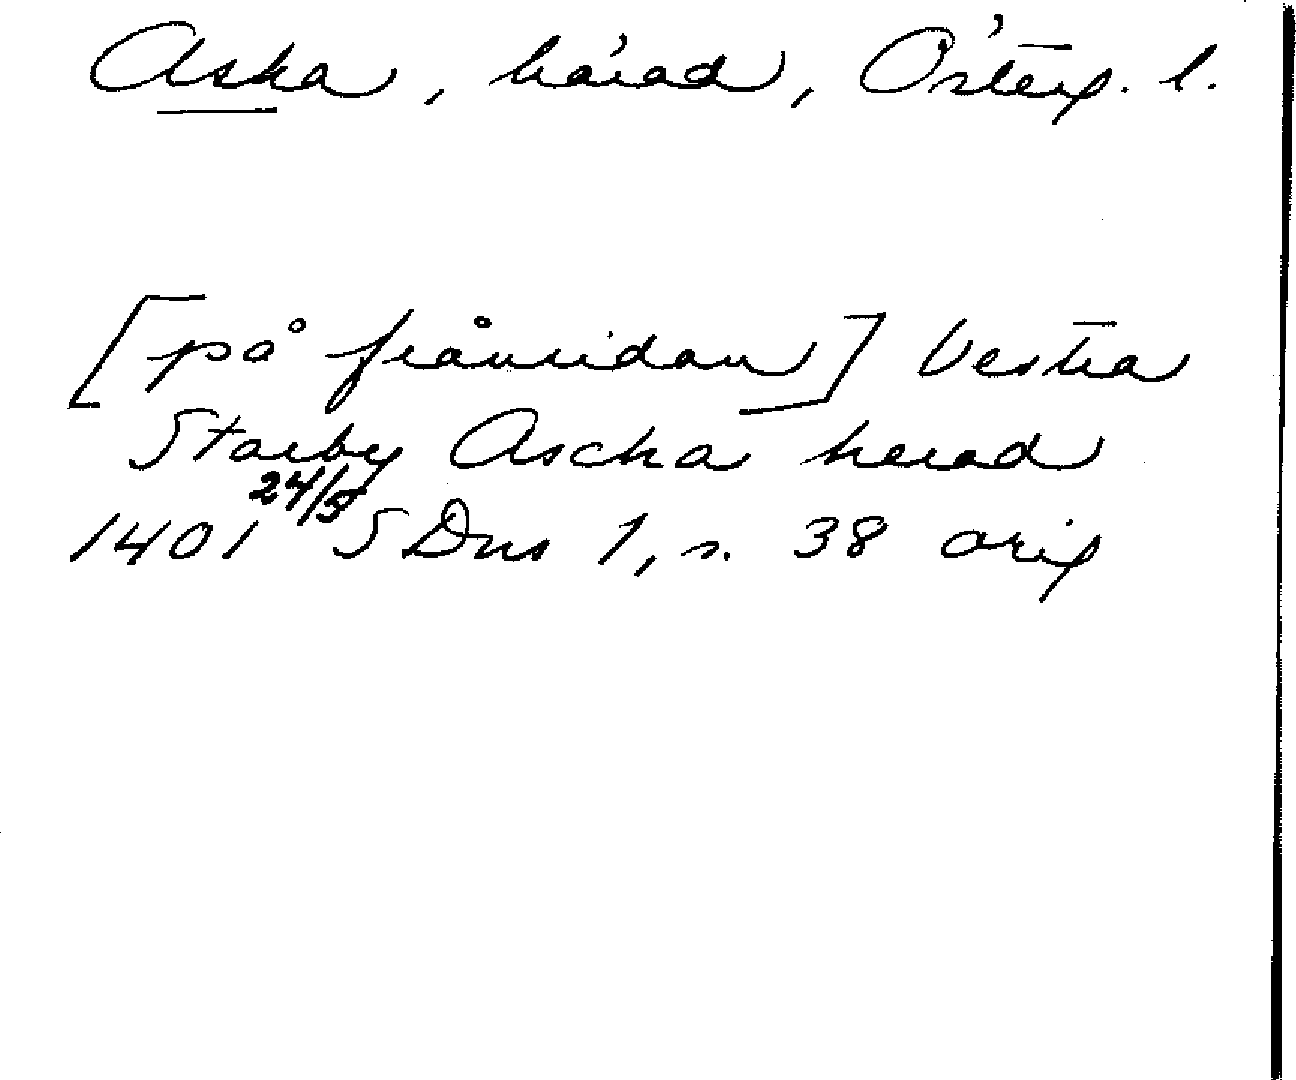 Aska, härad, Österg. l.
[på frånsidan] Vestra
Starby Ascha herad
1401 24/5 SDns 1, s. 38 orig